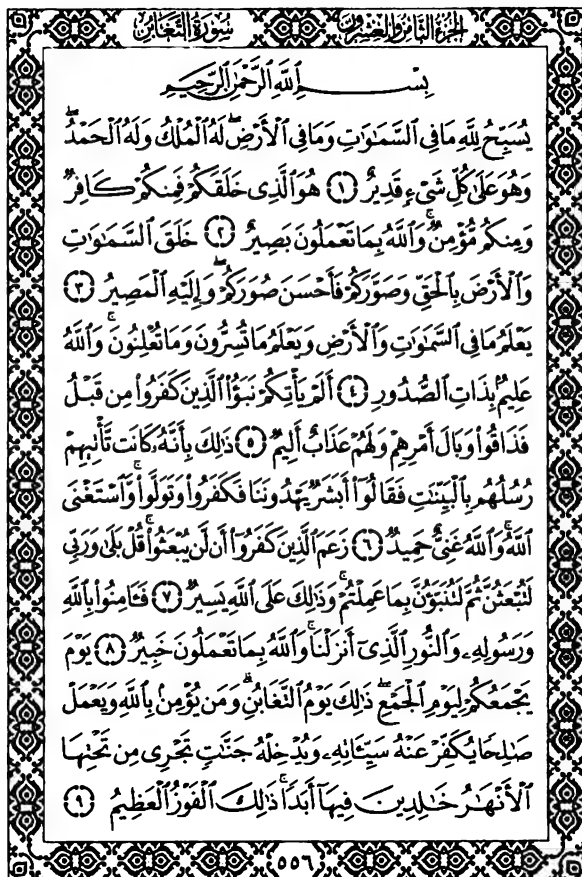 الجزء الثامن والعشرون سورة التغابن
بِسْمِ اللَّهِ الرَّحْمَٰنِ الرَّحِيمِ
يُسَبِّحُ لِلَّهِ مَا فِي السَّمَٰوَٰتِ وَمَا فِي الْأَرْضِ ۖ لَهُ الْمُلْكُ وَلَهُ الْحَمْدُ ۖ
وَهُوَ عَلَىٰ كُلِّ شَيْءٍ قَدِيرٌ ﴿١﴾ هُوَ الَّذِي خَلَقَكُمْ فَمِنكُمْ كَافِرٌ
وَمِنكُم مُّؤْمِنٌ ۚ وَاللَّهُ بِمَا تَعْمَلُونَ بَصِيرٌ ﴿٢﴾ خَلَقَ السَّمَٰوَٰتِ
وَالْأَرْضَ بِالْحَقِّ وَصَوَّرَكُمْ فَأَحْسَنَ صُوَرَكُمْ ۖ وَإِلَيْهِ الْمَصِيرُ ﴿٣﴾
يَعْلَمُ مَا فِي السَّمَٰوَٰتِ وَالْأَرْضِ وَيَعْلَمُ مَا تُسِرُّونَ وَمَا تُعْلِنُونَ ۚ وَاللَّهُ
عَلِيمٌۢ بِذَاتِ الصُّدُورِ ﴿٤﴾ أَلَمْ يَأْتِكُمْ نَبَؤُا۟ الَّذِينَ كَفَرُوا۟ مِن قَبْلُ
فَذَاقُوا۟ وَبَالَ أَمْرِهِمْ وَلَهُمْ عَذَابٌ أَلِيمٌ ﴿٥﴾ ذَٰلِكَ بِأَنَّهُۥ كَانَت تَّأْتِيهِمْ
رُسُلُهُم بِالْبَيِّنَٰتِ فَقَالُوٓا۟ أَبَشَرٌ يَهْدُونَنَا فَكَفَرُوا۟ وَتَوَلَّوا۟ ۚ وَّاسْتَغْنَى
اللَّهُ ۚ وَاللَّهُ غَنِيٌّ حَمِيدٌ ﴿٦﴾ زَعَمَ الَّذِينَ كَفَرُوٓا۟ أَن لَّن يُبْعَثُوا۟ ۚ قُلْ بَلَىٰ وَرَبِّي
لَتُبْعَثُنَّ ثُمَّ لَتُنَبَّؤُنَّ بِمَا عَمِلْتُمْ ۚ وَذَٰلِكَ عَلَى اللَّهِ يَسِيرٌ ﴿٧﴾ فَـَٔامِنُوا۟ بِاللَّهِ
وَرَسُولِهِۦ وَالنُّورِ الَّذِيٓ أَنزَلْنَا ۚ وَاللَّهُ بِمَا تَعْمَلُونَ خَبِيرٌ ﴿٨﴾ يَوْمَ
يَجْمَعُكُمْ لِيَوْمِ الْجَمْعِ ۖ ذَٰلِكَ يَوْمُ التَّغَابُنِ ۗ وَمَن يُؤْمِنۢ بِاللَّهِ وَيَعْمَلْ
صَٰلِحًا يُكَفِّرْ عَنْهُ سَيِّـَٔاتِهِۦ وَيُدْخِلْهُ جَنَّٰتٍ تَجْرِي مِن تَحْتِهَا
الْأَنْهَٰرُ خَٰلِدِينَ فِيهَآ أَبَدًا ۚ ذَٰلِكَ الْفَوْزُ الْعَظِيمُ ﴿٩﴾
٥٥٦